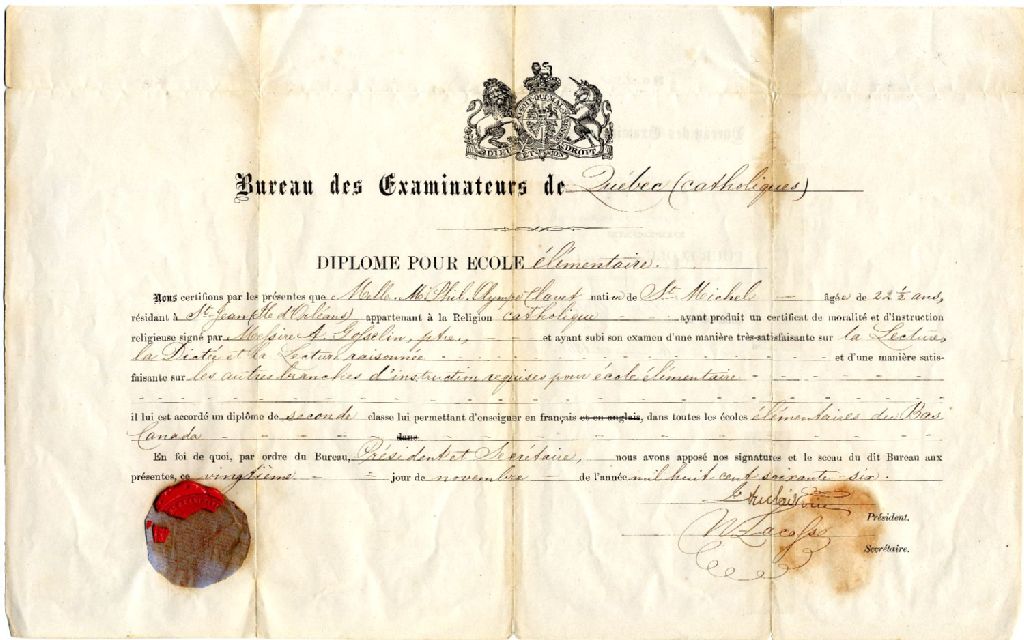 DIEU ET MON DROIT
Bureau des Examinateurs de Québec (catholiques)
DIPLOME POUR ECOLE élémentaire.
Nous certifions par les présentes que Melle. M. Phil. Olympe native de St. Michel — âgée de 22 ½ ans,
résidant à St. Jean (Ile d'Orléans) appartenant à la Religion catholique - - - ayant produit un certificat de moralité et d'instruction
religieuse signé par Messire A. Gosselin, ptre, - - et ayant subi son examen d'une manière très-satisfaisante sur la Lecture,
la Dictée et la Lecture raisonnée - - - et d'une manière satis-
faisante sur les autres branches d'instruction requises pour école élémentaire - - -
il lui est accordé un diplôme de seconde classe lui permettant d'enseigner en français et en anglais, dans toutes les écoles élémentaires du Bas
Canada - - - dans - - -
En foi de quoi, par ordre du Bureau, Président et Secrétaire, - nous avons apposé nos signatures et le sceau du dit Bureau aux
présentes, ce vingtième - - jour de novembre - de l'année mil huit cent soixante six.
Président.
N. Lacasse
Secrétaire.